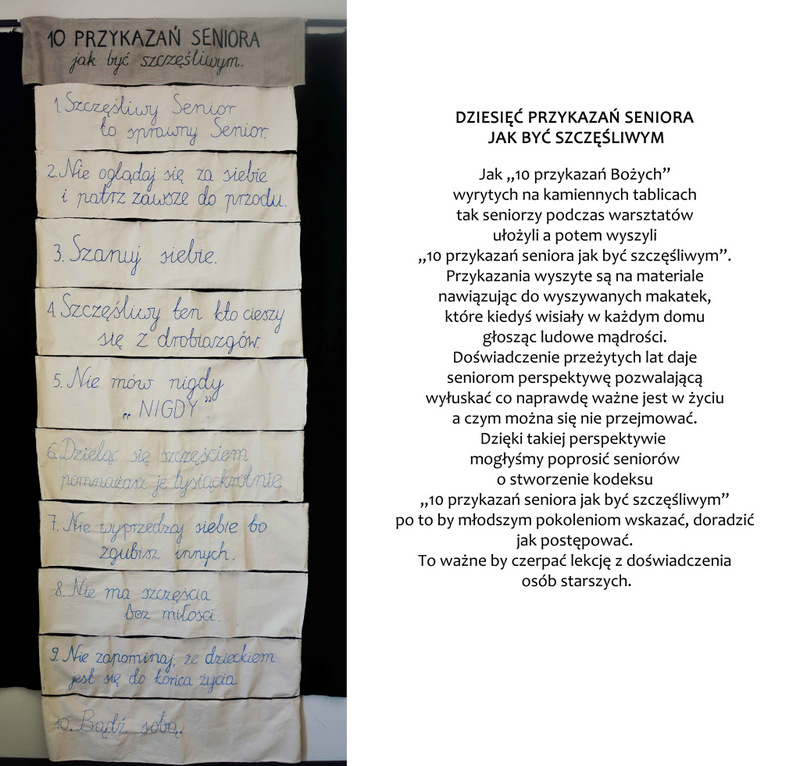 10 PRZYKAZAŃ SENIORA
jak być szczęśliwym.
1. Szczęśliwy Senior
to sprawny Senior.
2. Nie oglądaj się za siebie
i patrz zawsze do przodu.
3. Szanuj siebie.
4. Szczęśliwy ten kto cieszy
się z drobiazgów.
5. Nie mów nigdy
„NIGDY”
6. Dzieląc się szczęściem
pomnażasz je tysiąckrotnie
7. Nie wyprzedzaj siebie bo
zgubisz innych.
8. Nie ma szczęścia
bez miłości.
9. Nie zapominaj, że dzieckiem
jest się do końca życia.
10. Bądź sobą.
DZIESIĘĆ PRZYKAZAŃ SENIORA
JAK BYĆ SZCZĘŚLIWYM
Jak „10 przykazań Bożych”
wyrytych na kamiennych tablicach
tak seniorzy podczas warsztatów
ułożyli a potem wyszyli
„10 przykazań seniora jak być szczęśliwym”.
Przykazania wyszyte są na materiale
nawiązując do wyszywanych makatek,
które kiedyś wisiały w każdym domu
głosząc ludowe mądrości.
Doświadczenie przeżytych lat daje
seniorom perspektywę pozwalającą
wyłuskać co naprawdę ważne jest w życiu
a czym można się nie przejmować.
Dzięki takiej perspektywie
mogłyśmy poprosić seniorów
o stworzenie kodeksu
„10 przykazań seniora jak być szczęśliwym”
po to by młodszym pokoleniom wskazać, doradzić
jak postępować.
To ważne by czerpać lekcję z doświadczenia
osób starszych.